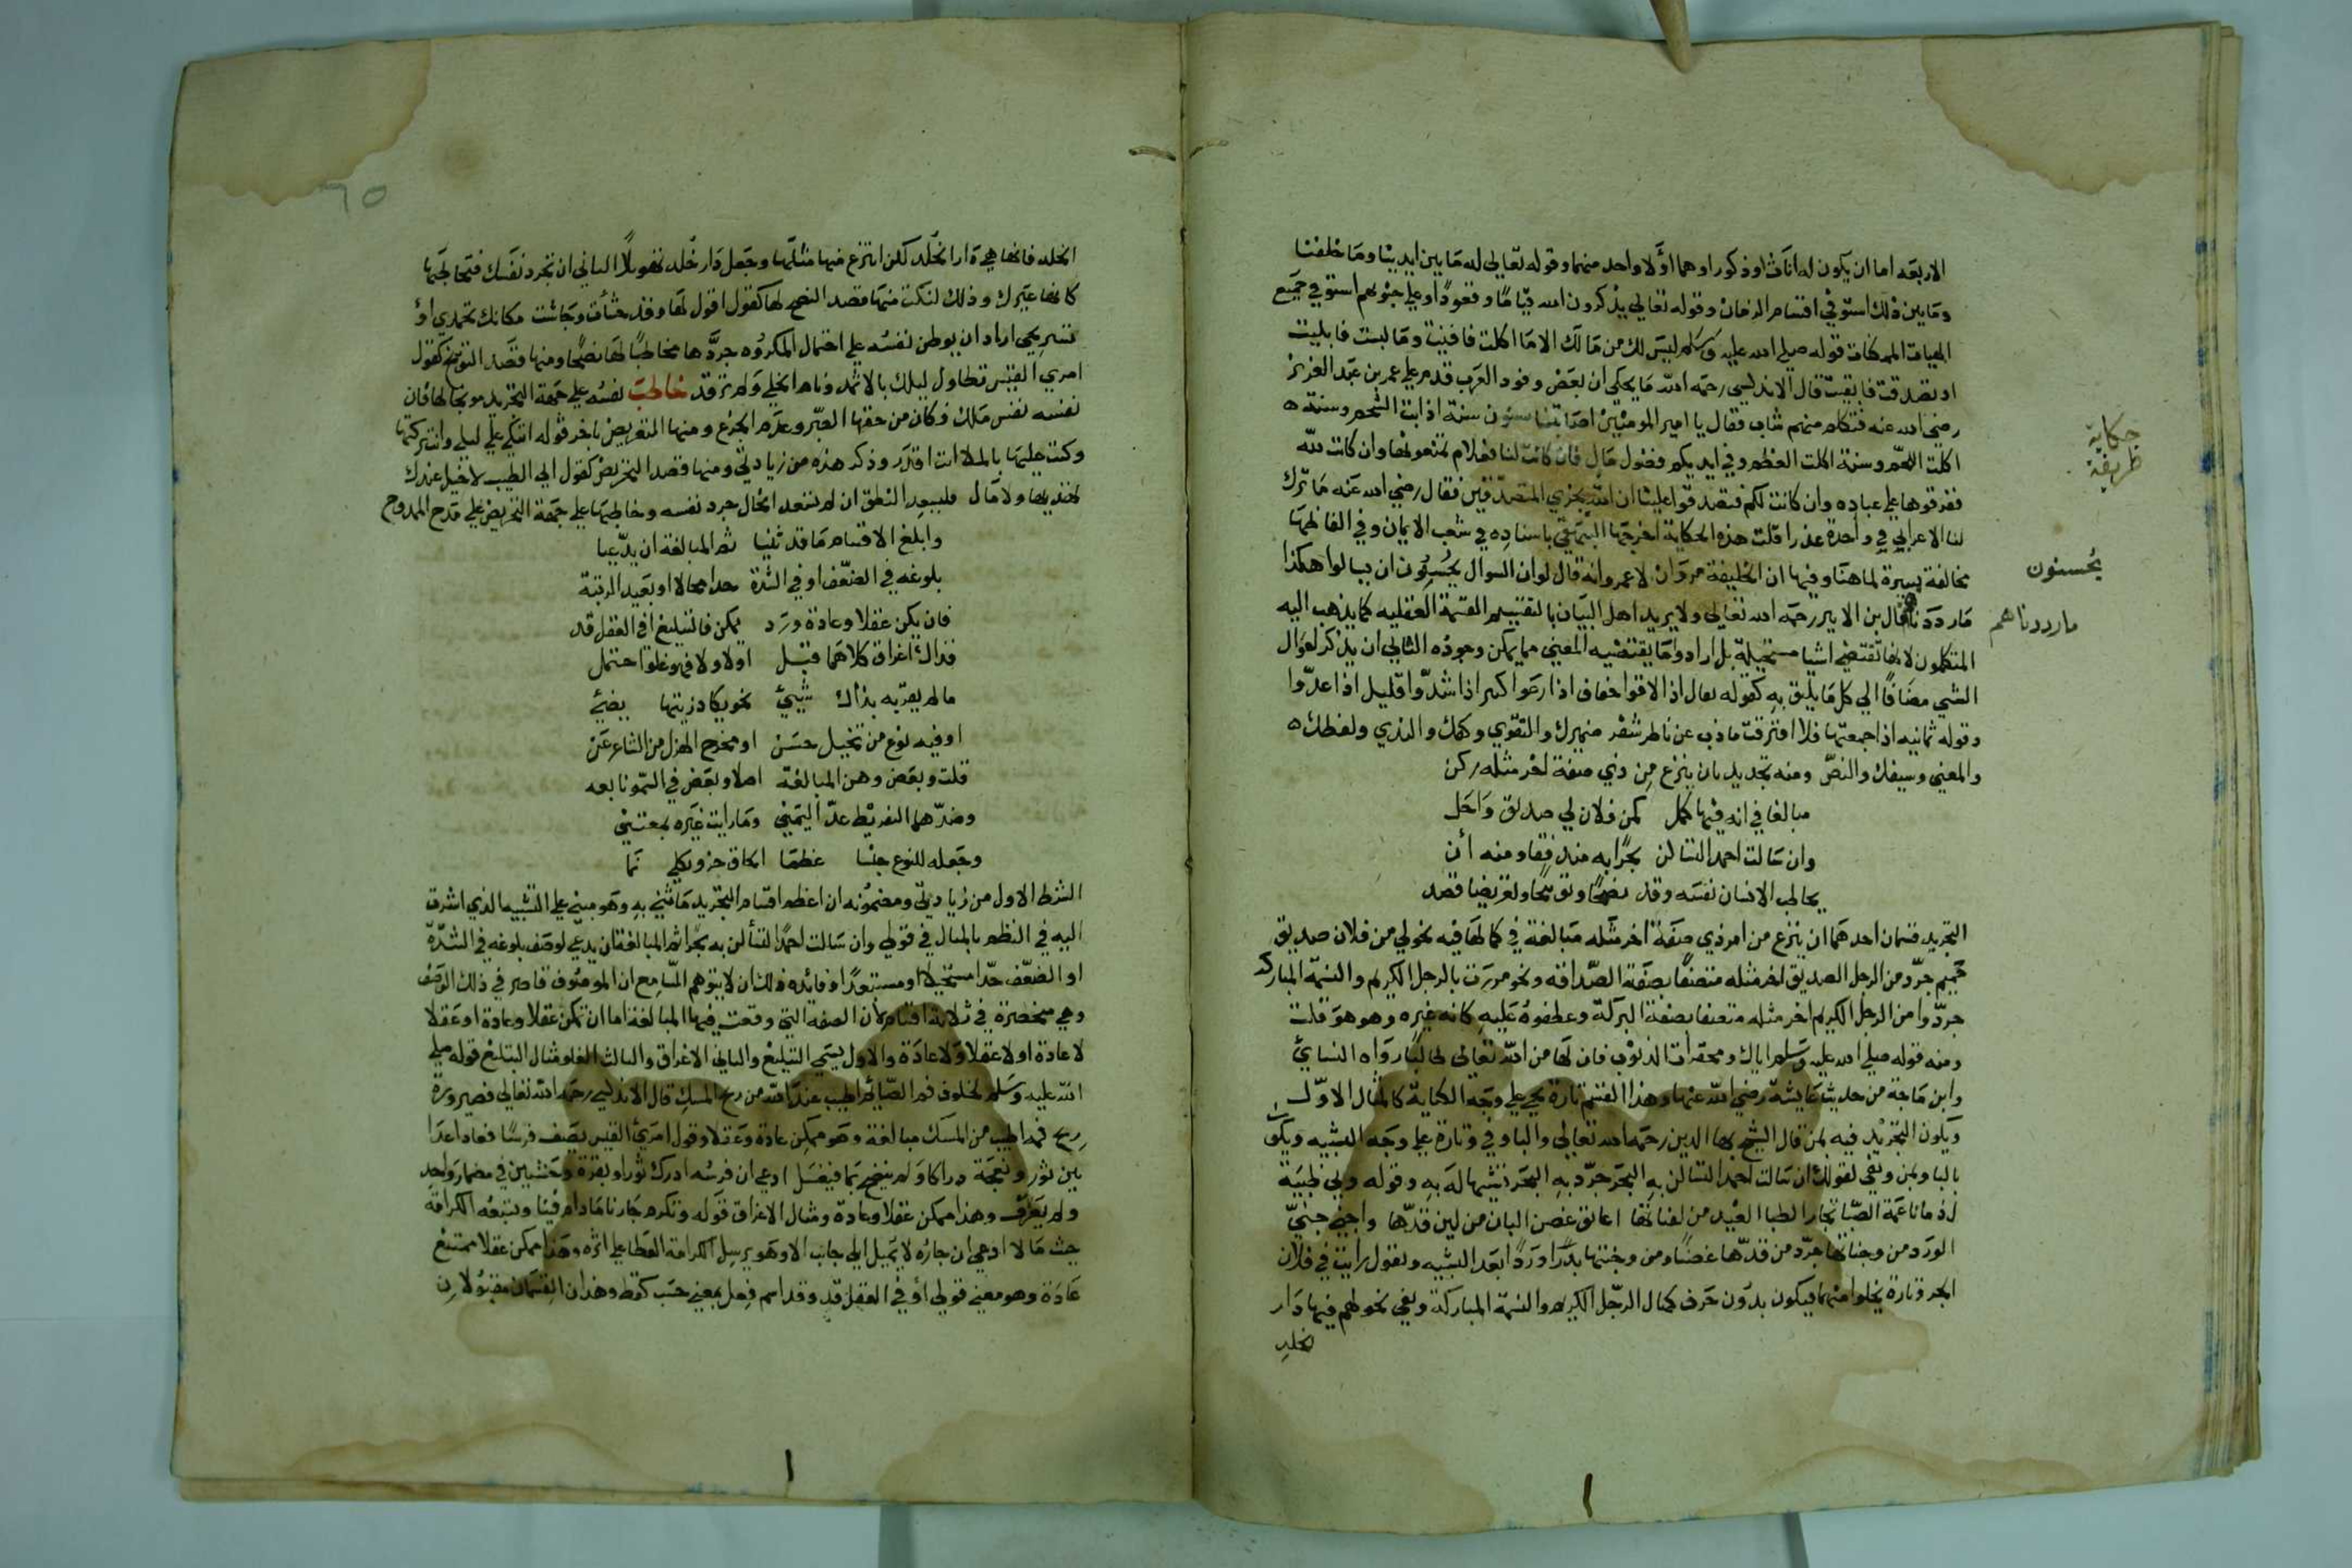 الاربعه اما ان يكون له اناث او ذكور او هما او لا واحد منهما وقوله تعالى له ما بين ايدينا وما خلفنا
وما بين ذلك استوفي اقسام الزمان وقوله تعالي يذكرون الله قياما وقعودًا وعلى جنوبهم استوفي جميع
الهيات الممكنات قوله صلى الله عليه وسلم ليس لك من مالك الا ما اكلت فافنيت وما لبست فابليت
او تصدقت فابقيت قال الاندلسي رحمه الله ما يحكى ان بعض وفود العرب قدم على عمر بن عبد العزيز
رضي الله عنه فتكلم منهم شاب فقال يا امير المومنين اصابتنا سنون سنة اذابت الشحم وسنة
اكلت اللحم وسنة اكلت العظم وفي ايديكم فضول مال فان كانت لنا فعلام تمنعونها وان كانت لله
ففرقوها علي عباده وان كانت لكم فتصدقوا علينا ان الله يجزي المتصدقين فقال رضي الله عنه ما ترك
لنا الاعرابي في واحدة عذرا قلت هذه الحكاية اخرجها البيهقي باسناده في شعب الايمان وفي الفاظها
مخالفة يسيرة لما هنا وفيها ان الخليفة مروان لا عمر وانه قال لو ان السوال يحسنون ان يسالوا هكذا
ما رددنا قال بن الاثير رحمه الله تعالى ولا يريد اهل البيان بالتقسيم القسمة العقليه كما يذهب اليه
المتكلمون لانها تقتضي اشيا مستحيلة بل ارادوا ما يقتضيه المعني مما يمكن وجوده الثاني ان يذكر احوال
الشي مضافًا الي كل ما يليق به كقوله ثقال اذا لاقوا خفاف اذا دعوا كثير اذا شدوا قليل اذا عدّوا
وقوله ثمانيه اذا جمعتها فلا افترقت ما ذب عن ناظر شفر ضميرك والتقوي وكفك والندي ولفظك
والمعني وسيفك والنصّ ومنه تجديد بان ينزع من ذي صفة اخر مثله زكن
مبالغا في انه فيها كمل كمن فلان لي صديق واحل
وان سالت احمد التسالن بحرًا به منه فقاو منه أن
يخاطب الانسان نفسه وقد نصحًا وتوبيخًا وتعريضا قصد
التجريد قسمان احدهما ان ينزع من امر ذي صفة اخر مثله مبالغة في كمالها فيه نحو لي من فلان صديق
حميم جرّد من الرجل الصديق اخر مثله متصفًا بصفة الصّداقه ونحو مررت بالرجل الكريم والنسمة المباركه
جرّدوا من الرجل الكريم اخر مثله متصفا بصفة البركة وعطفوه عليه كانه غيره وهو هو قلت
ومنه قوله صلى الله عليه وسلم اياك ومحقرات الذنوب فان لها من الله تعالى طالبًا رواه النسائي
وابن ماجة من حديث عايشة رضي الله عنها وهذا القسم تارة يجي علي وجه الكناية كالمثال الاوّل
ويكون التجريد فيه بمن قال الشيخ بها الدين رحمه الله تعالى والبا وفي وتارة علي وجه التشبيه ويكون
بالبا وبمن وبفي كقولك ان سالت احمدا لتسالن به البحر جرّد به البحر تشبيها له به وقوله ولي ظبية
الورد من وجناتها جرّد من قدّها غصنًا ومن وجنتها بدرًا وردًا بعد التشبيه وتقول رايت في فلان
البحر وتارة يخلوا منهما فيكون بدون حرف كمثال الرّجل الكريم والنسمة المباركة وبفي نحو لهم فيها دار
الخلدِ
حكاية
ظريفة
يُحسنون
ما رددناهم
٦٥
الخلد فانها هي دار الخلد لكن انتزع منها مثلها وجعل دار خلد تهويلاً الثاني ان تجرد نفسك فتخاطبها
كانها غيرك وذلك لنكت منها قصد النصح لها كقول اقول لها وقد جشأت وجاشت مكانك تحمدي او
تستريحي اراد ان يوطن نفسه علي احتمال المكروه جرّدها مخاطبًا لها نصحًا ومنها قصد التوبيخ كقول
امري القيس تطاول ليلك بالاثمد ونام الخلي ولم ترقد خاطب نفسه علي جهة التجريد موبخا لها فان
نفسه نفس ملك فكان من حقها الصبر وعدم الجزع ومنها التعريض باخر قوله اتبكي علي ليلي وانت تركتها
وكنت عليها بالملا انت اقدر وذكر هذه من زيادتي ومنها قصد التحريض كقول ابي الطيب لا خيل عندك
تهديها ولا مال فليسعد النطق ان لم تسعد الحال جرد نفسه وخاطبها علي جهة التحريض علي مدح الممدوح
وابلغ الاقسام ما قد ثنيا ثم المبالغة ان يدّعيا
بلوغه في الضّعف او في الشدة حدا محالا او بعيد الرتبة
فان يكن عقلا وعادة ورد يمكن فالتبليغ او في العقل قد
فذاك اغراق كلاهما قبل اولا ولا فهو غلوا احتمل
ما لم يقرّبه بذاك شيئ نحو يكاد زيتها يضيئ
او فيه نوع من تخييل حسن او مخرج الهزل من الشاعر عن
قلت وبعض وهن المبالغة اصلا وبعض في السّمو تابعه
وضدّهما التفريط عدّ اليمني وما رايت غيره بمعتني
وجعله للنوع جنسا عظما الحاق جزوي بكلي نما
الشرط الاول من زيادتي ومضمونه ان اعظم اقسام التجريد ما ثني به وهو مبني علي التشبيه الذي اشرت
اليه في النظم بالمثال في قولي وان سالت احمدًا لتسألن به بحرًا ثم المبالغة ان يدعي لوصف بلوغه في الشدّة
او الضعف حدّا مستحيلا او مستبعدًا وفائده ذلك ان لا يتوهم السّامع ان الموصوف قاصر في ذلك الوصف
وهي منحصرة في ثلاثة اقسام لأن الصفه التي وقعت فيها المبالغة اما ان تمكن عقلا وعادة او عقلا
لا عادة او لا عقلا ولا عادة والاول يسمي التبليغ والثاني الاغراق والثالث الغلو مثال التبليغ قوله صلي
الله عليه وسلم لخلوف فم الصّائم اطيب عند الله من ريح المسك قال الاندلسي رحمه الله تعالى فصيرورة
ريح فمه اطيب من المسك مبالغة وهو ممكن عادة وعقلا وقول امرئ القيس يصف فرسًا فعادا عدا
بين ثور ونعجة دراكا ولم ينضح بما فيغسل ادعي ان فرسه ادرك ثورا وبقرة وحشيين في مضمار واحد
ولم يعرق وهذا ممكن عقلا وعادة ومثال الاغراق قوله ونكرم جارنا ما دام فينا ونتبعه الكرامة
حيث مالا ادعي ان جاره لا يميل الي جانب الا وهو يرسل الكرامة والعطا علي اثره وهذا ممكن عقلا ممتنع
عادة وهو معني قولي او في العقل قد وقد اسم فعل بمعني حسب كقط وهذان القسمان مقبولان